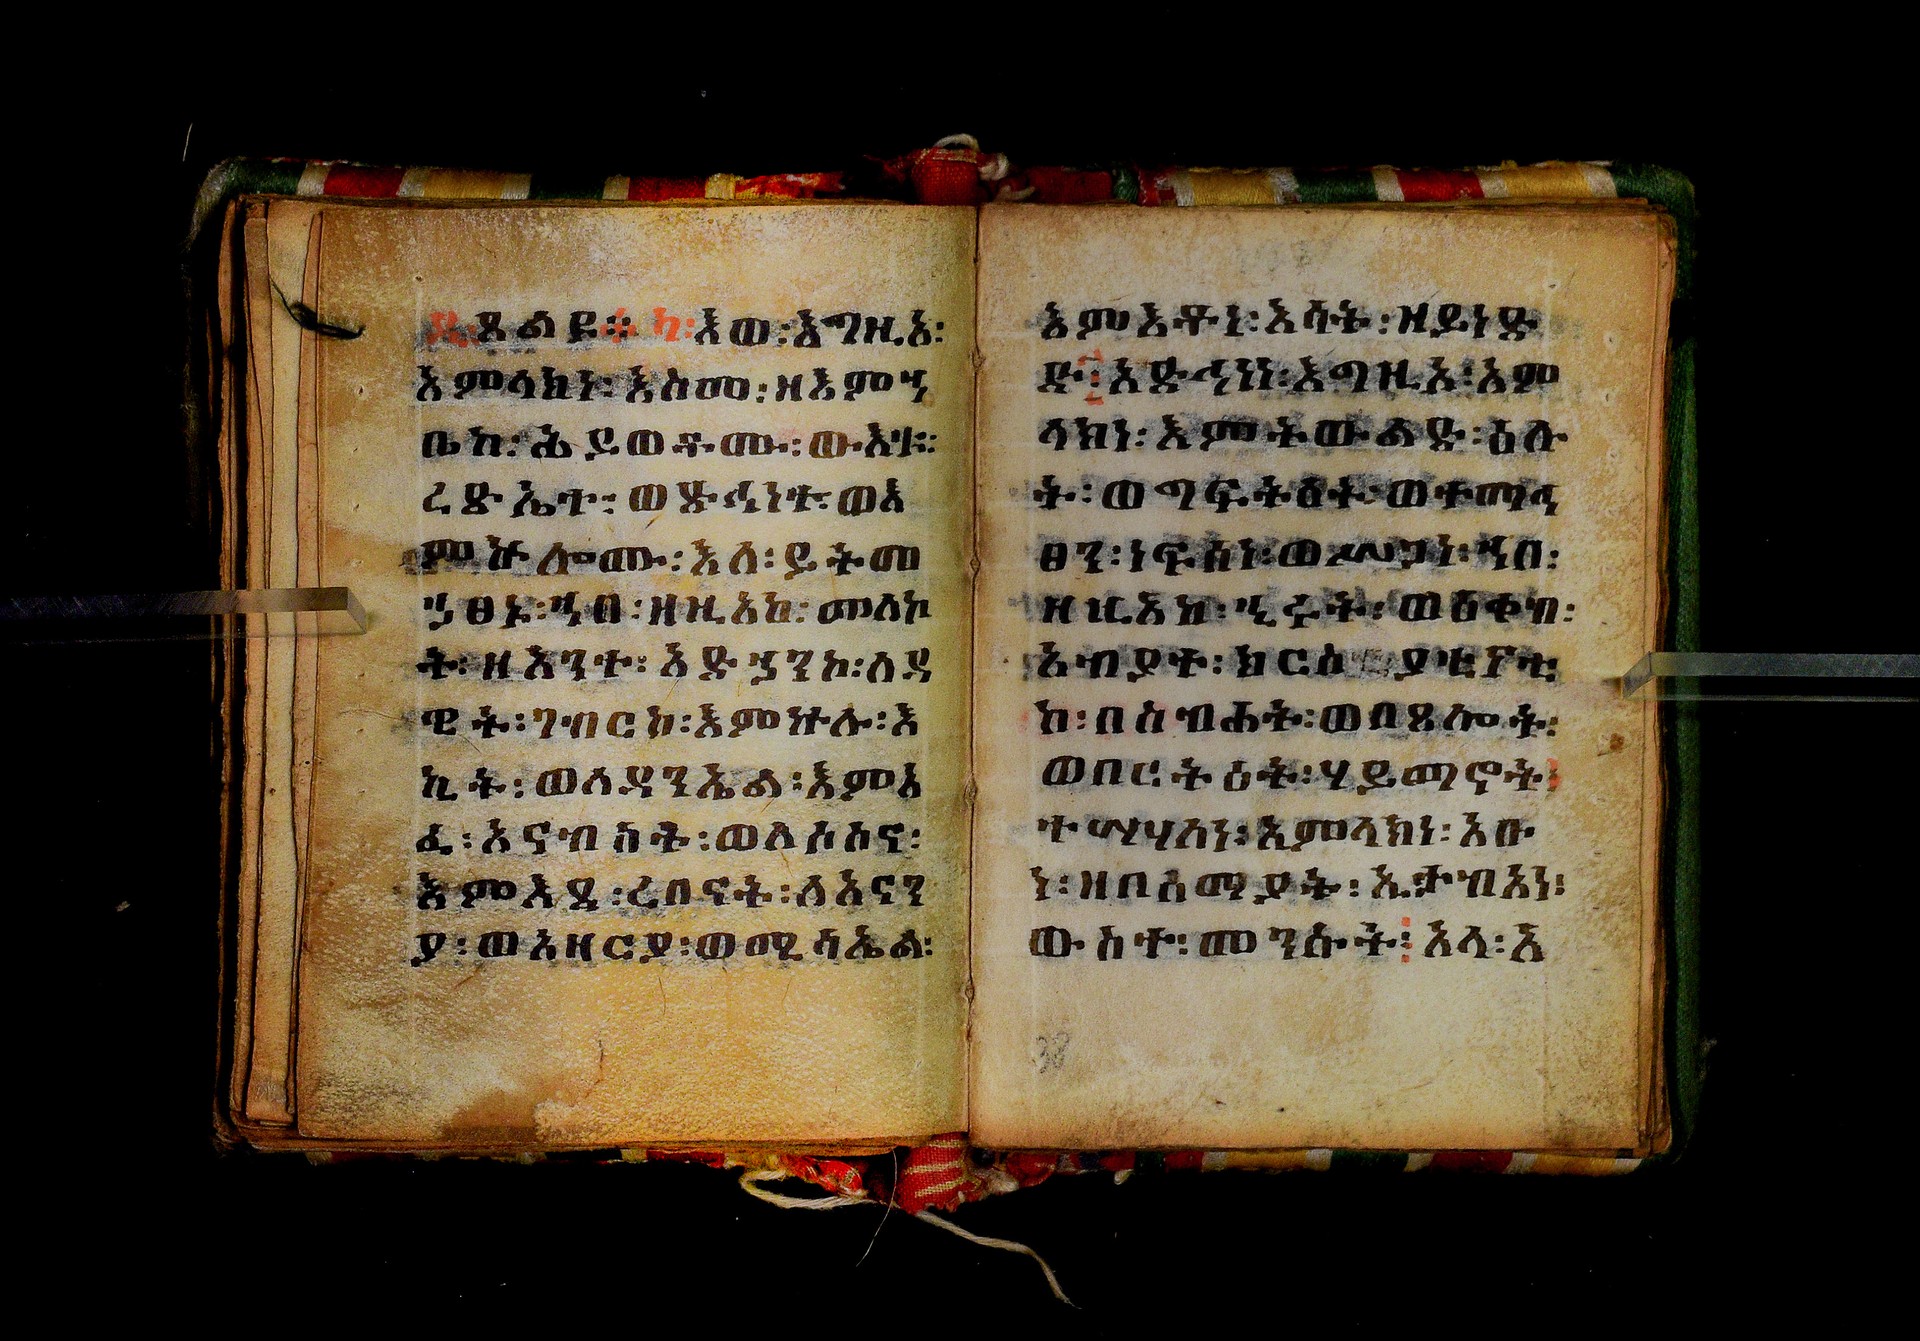 ዲ፡ ጸልዩ፨ ካ፡ እወ፡ እግዚአ፡
አምላክነ፡ እስመ፡ ዘእምኀ
ቤከ፡ ሕይወቶሙ፡
ረድኤተ፡ ወ
ምኵሎሙ፡ እለ፡ ይትመ
ኀፀኑ፡ ኀበ፡ ዝዚአከ፡ መለኮ
ት፡ ዘአንተ፡ አድኀንኮ፡ ለዳ
ዊት፡ ገብርከ፡ እምኵሉ፡ እ
ኪት፡ ወለዳንኤል፡ እምአ
ፈ፡ አናብስት፡ ወለሶስና፡
እምእደ፡ ረበናት፡ ለአናን
ያ፡ ወአዛርያ፡ ወሚሳኤል፡
እምእቶነ፡ እሳት፡ ዘይነድ
ድ፡ አድኅነነ፡ እግዚአ፡ አም
ላክነ፡ እምትውልድ፡ ዕሉ
ት፡ ወግፍትዕት፡ ወተማኅ
ፀን፡ ነፍስነ፡ ወሥጋነ፡ ኀበ፡
ዝዚአከ፡ ኂሩት፡ ወዕቀብ፡
አብያተ፡ ክርስቲያናቲ
ከ፡ በስብሐት፡ ወበሰሎት፡
ወበርትዕት፡ ሃይማኖት፡
ተሣሃለነ፡ አምላክነ፡ አቡ
ነ፡ ዘበሰማያት፡ ኢታብአነ፡
ውስተ፡ መንሱት፡ አላ፡ አ
38